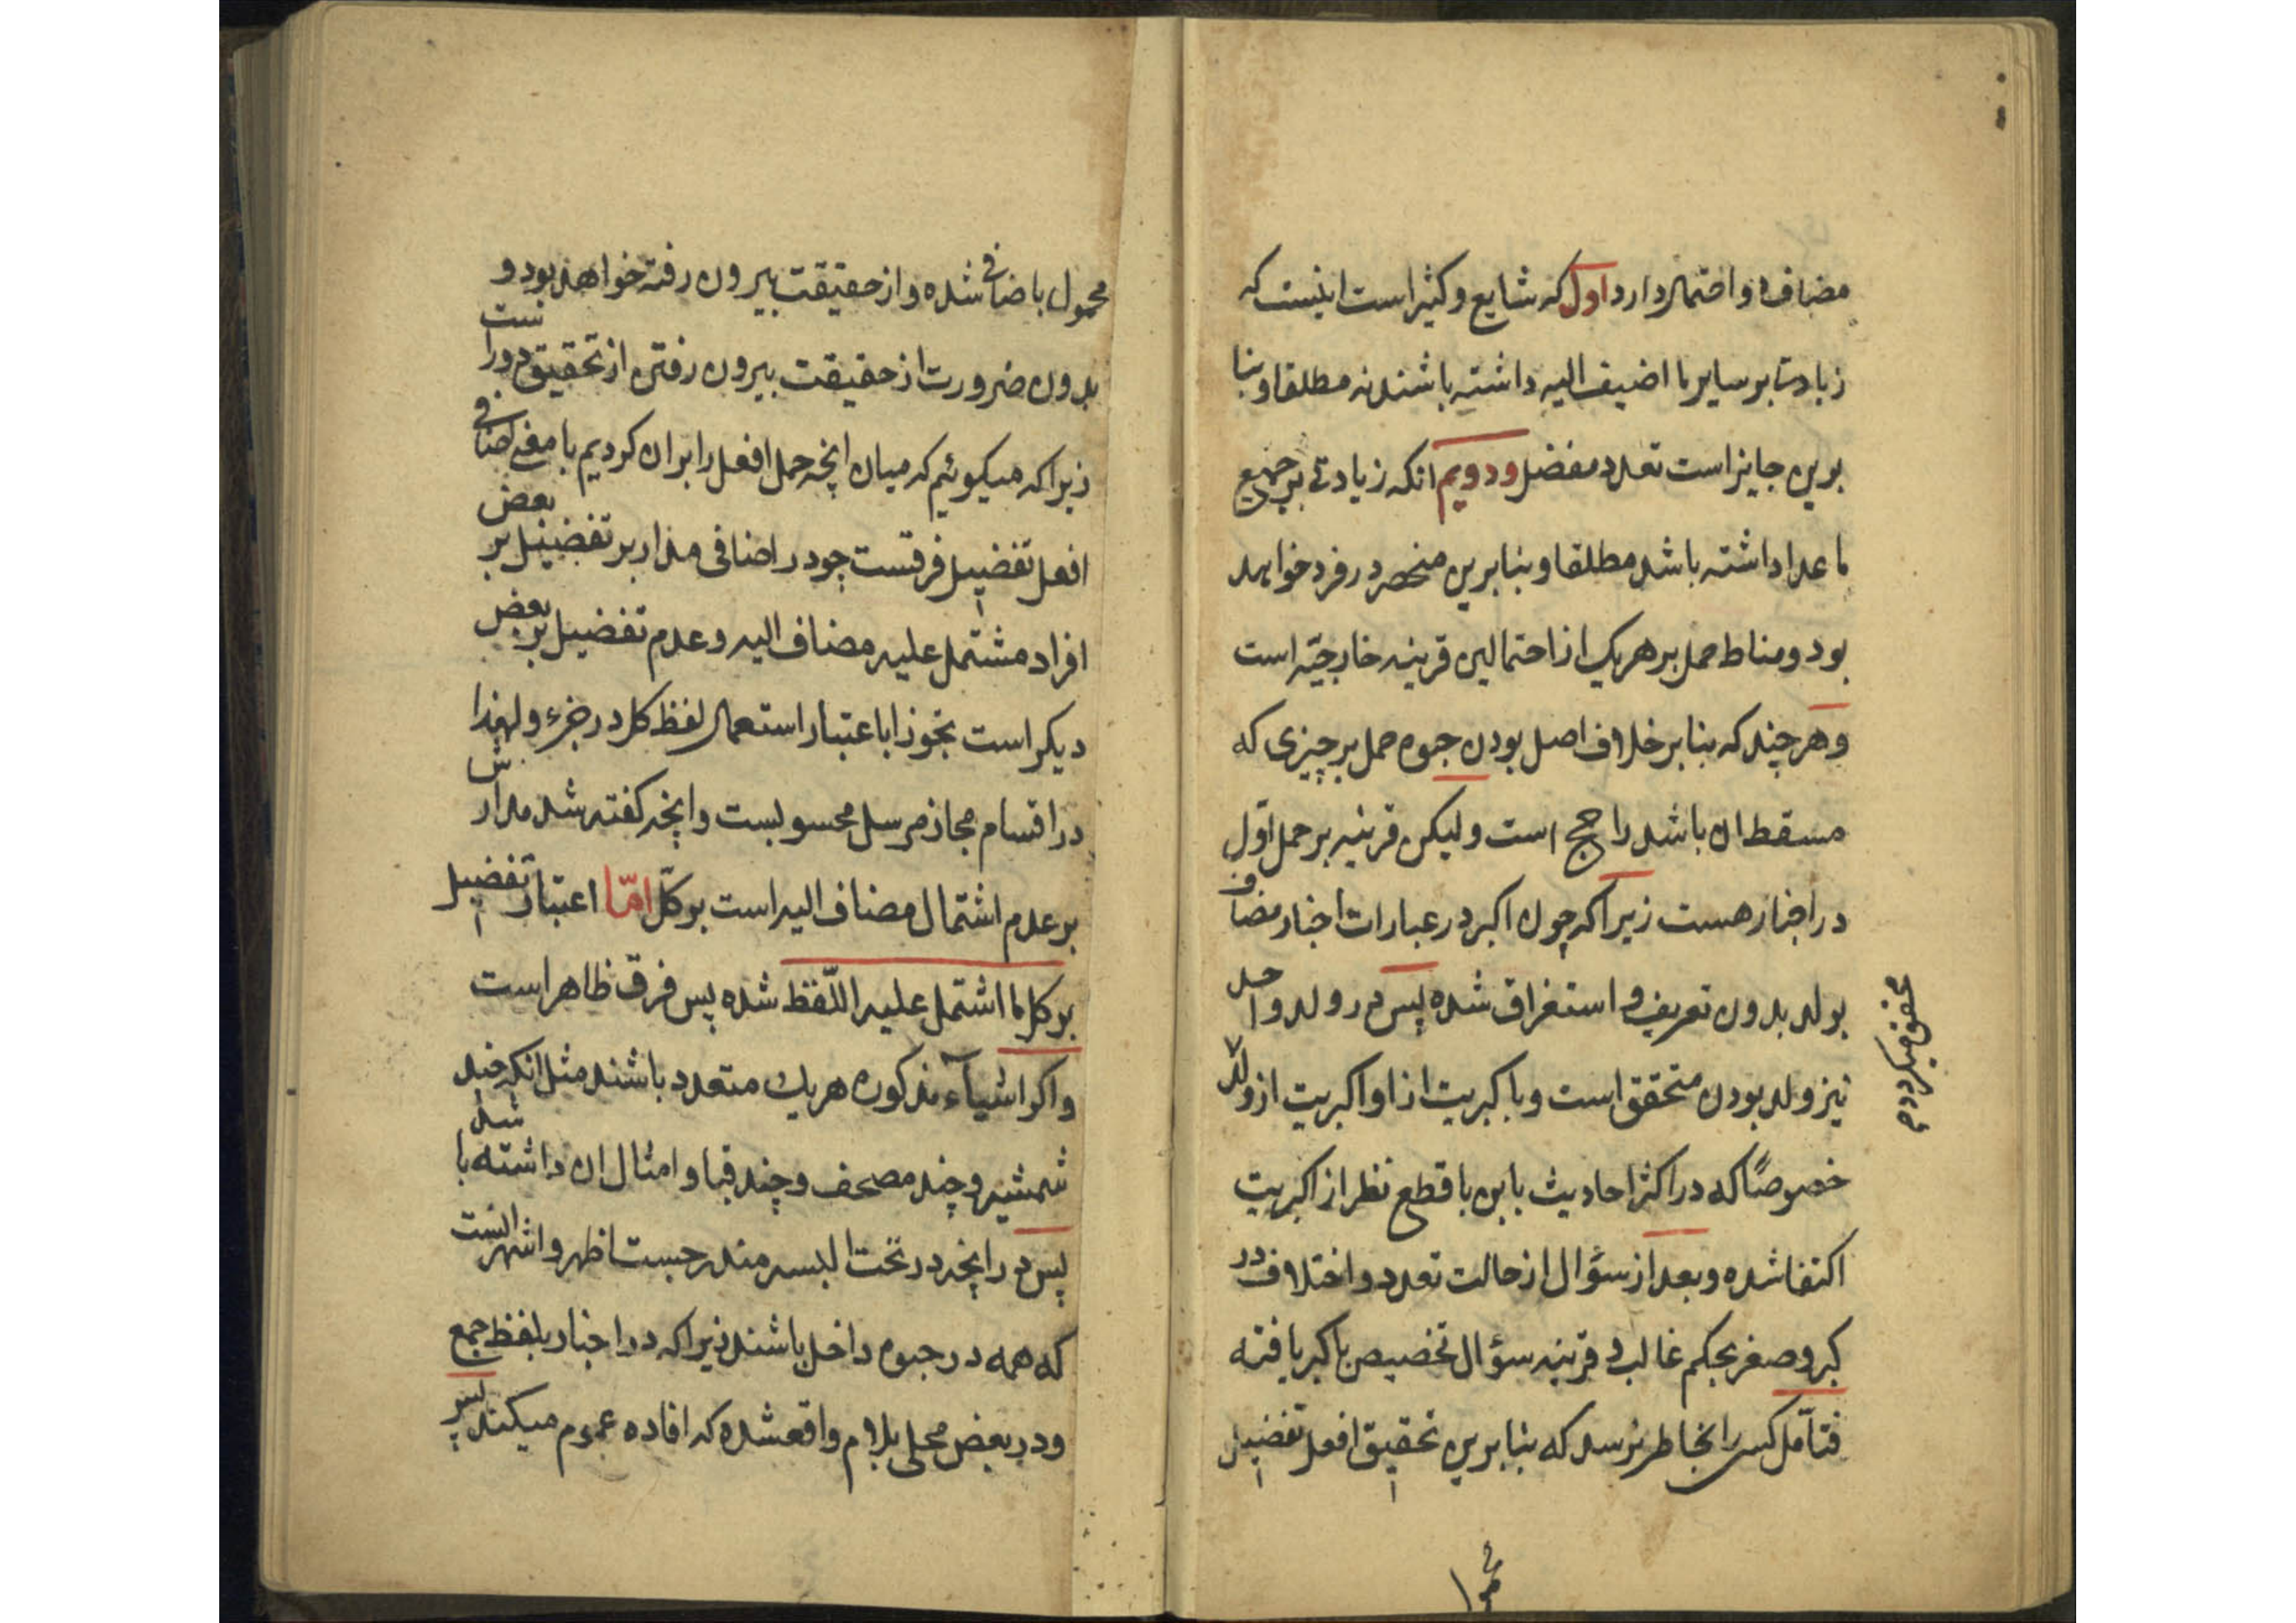 مضاف دو احتمال دارد اول که شایع و کثیر است اینست که
زیادت بر سایر ما اضیف الیه داشته باشند نه مطلقا و بنا
برین جایز است تعدد مفضل و دویم انکه زیادتی بر جمیع
ما عدا داشته باشد مطلقا و بنابرین منحصر در فرد خواهد
بود و مناط حمل بر هر یک از احتمالین قرینه خارجیّه است
و هر چند که بنا بر خلاف اصل بودن حبوه حمل بر چیزی که
مسقط ان باشد راجح است و لیکن قرینه بر حمل اوّل
در اخبار هست زیرا که چون اکبر در عبارات اخبار مضاف
بولد بدون تعریف و استغراق شده پس در ولد واحد
نیز ولد بودن متحقق است و با کبریت از او اکبریت از ولد
محقق میکردد م
خصوصًا که در اکثر احادیث باین با قطع نظر از اکبریت
اکتفا شده و بعد از سؤال از حالت تعدد و اختلاف در
کبر و صغر بحکم غالب و قرینه سؤال تخصیص باکبر یافته
فتأمّل کسی را بخاطر نرسد که بنابرین تحقیق افعل تفضیل
محمول
محمول باضافی شده و از حقیقت بیرون رفته خواهد بود و
بدون ضرورت از حقیقت بیرون رفتن از تحقیق دور است
زیرا که میکوئیم که میان انچه حمل افعل را بران کردیم با معنی اضافی
افعل تفضیل فرقست چو در اضافی مدار بر تفضیل بر بعض
افراد مشتمل علیه مضاف الیه و عدم تفضیل بر بعض
دیکر است تجوزا باعتبار استعمال لفظ کل در جزء و لهذا
در اقسام مجاز مرسل محسوبست و انچه کفته شد مدارش
بر عدم اشتمال مضاف الیه است بر کلّ امّا اعتبار تفضیل
بر کل ما اشتمل علیه اللّفظ شده پس فرق ظاهر است
و اکر اشیاء مذکوره هر یک متعدد باشند مثل انکه چند
شمشیر و چند مصحف و چند قبا و امثال ان داشته باشد
پس در انچه در تحت البسه مندرجست اظهر و اشهر انست
که همه در حبوه داخل باشند زیرا که در اخبار بلفظ جمع
و در بعض محلی بلام واقعشده که افاده عموم میکند پس